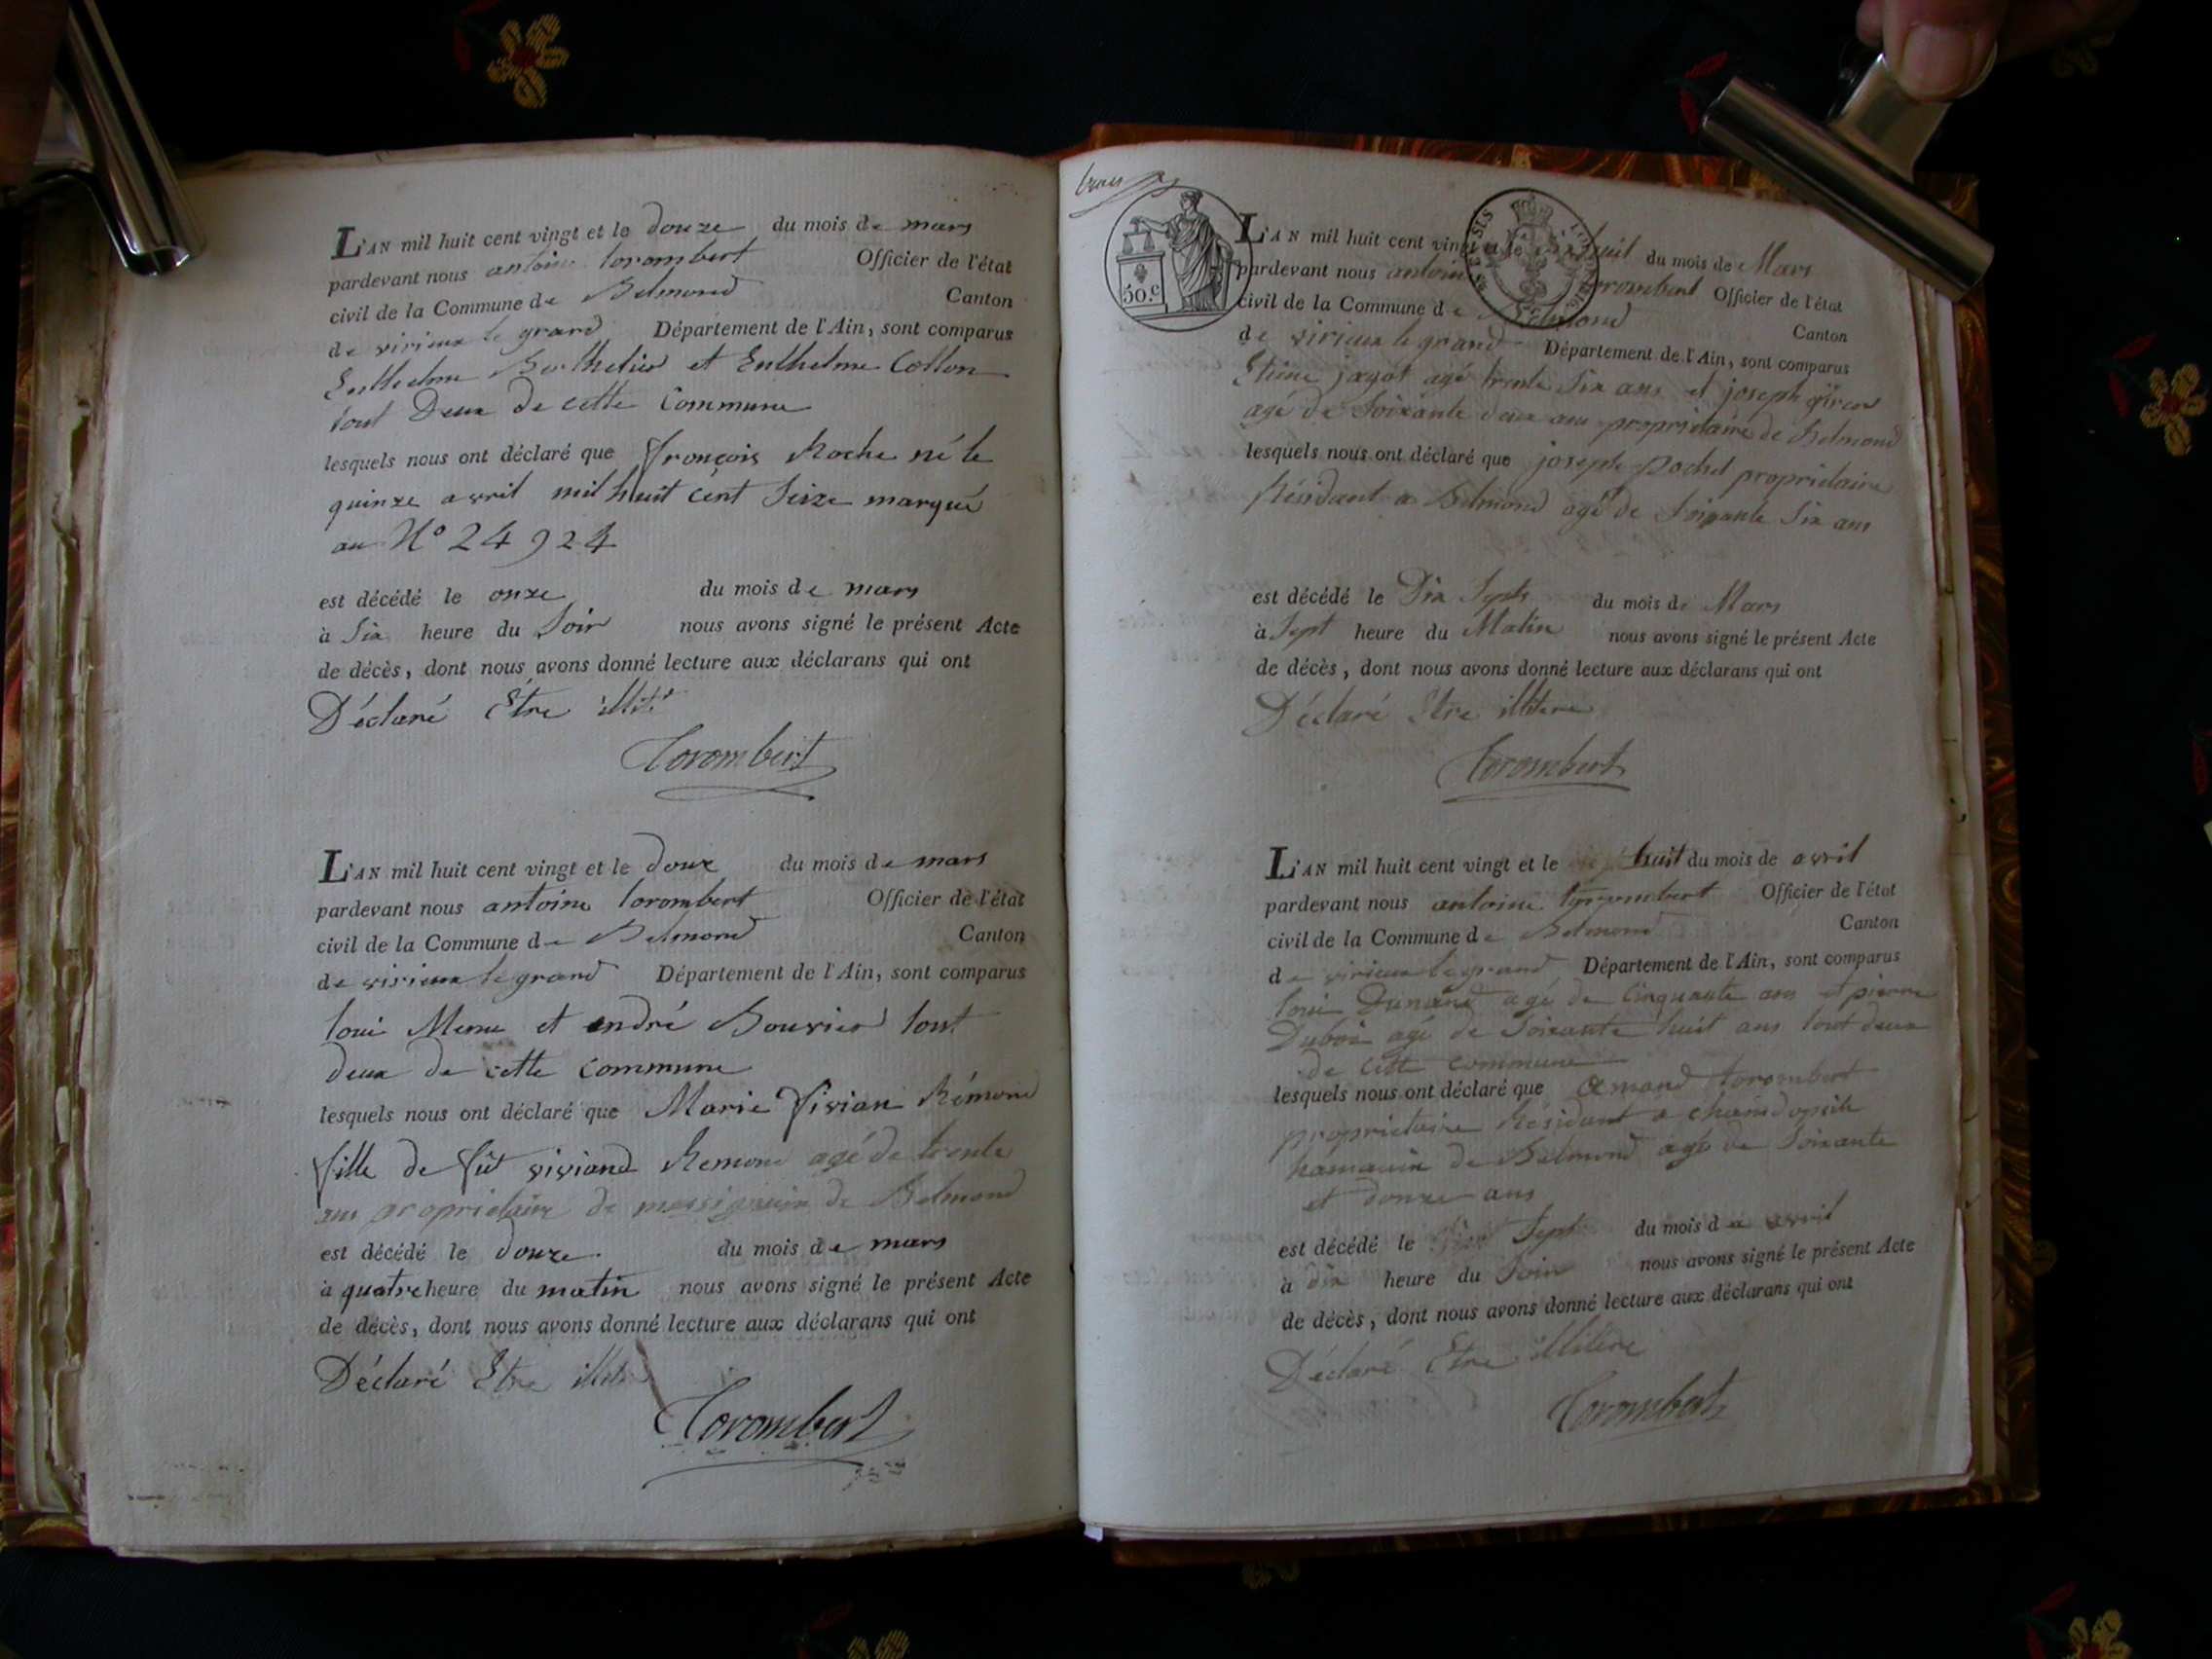 L'AN mil huit cent vingt et le douze du mois de mars
pardevant nous antoine torombert Officier de l'état
civil de la Commune de Belmond Canton
de virieux le grand Département de l'Ain, sont comparus
Enthelme Berthelier et Enthelme Collon
tout Deux de cette Commune
lesquels nous ont déclaré que françois Roche né le
quinze avril mil huit cent Seize marqué
au N° 24924
est décédé le onze du mois de mars
à Six heure du Soir nous avons signé le présent Acte
de décès, dont nous avons donné lecture aux déclarans qui ont
Déclaré Etre
Torombert
L'AN mil huit cent vingt et le douze du mois de mars
pardevant nous antoine torombert Officier de l'état
civil de la Commune de Belmond Canton
de virieux le grand Département de l'Ain, sont comparus
loui Menu et andré Bouvier tout
deux de cette commune
lesquels nous ont déclaré que Marie Vivian Rémond
fille de viviand Remond agé de trente
ans propriétaire de de Belmond
est décédé le douze du mois de mars
à quatre heure du matin nous avons signé le présent Acte
de décès, dont nous avons donné lecture aux déclarans qui ont
Déclaré Etre
Torombert
50.c
L'AN mil huit cent vingt et le huit du mois de Mars
pardevant nous antoine torombert Officier de l'état
civil de la Commune de Belmond Canton
de virieux le grand Département de l'Ain, sont comparus
Etiene jagot agé trente Six ans et joseph
agé de Soixante deux ans propriétaire de Belmond
lesquels nous ont déclaré que joseph Pochet propriétaire
Résidant a Belmond agé de Soixante Six ans
est décédé le Dix Sept du mois de Mars
à Sept heure du Matin nous avons signé le présent Acte
de décès, dont nous avons donné lecture aux déclarans qui ont
Déclaré Etre illitere
Torombert
L'AN mil huit cent vingt et le huit du mois de avril
pardevant nous antoine torombert Officier de l'état
civil de la Commune de Belmond Canton
de virieux le grand Département de l'Ain, sont comparus
loui Dunand agé de Cinquante ans et pierre
Dubois agé de Soixante huit ans tout deux
de cette commune
lesquels nous ont déclaré que amand torombert
propriétaire Résidant a
de Belmond agé de Soixante
et douze ans
est décédé le Sept du mois de avril
à dix heure du Soir nous avons signé le présent Acte
de décès, dont nous avons donné lecture aux déclarans qui ont
Déclaré Etre illitere
Torombert